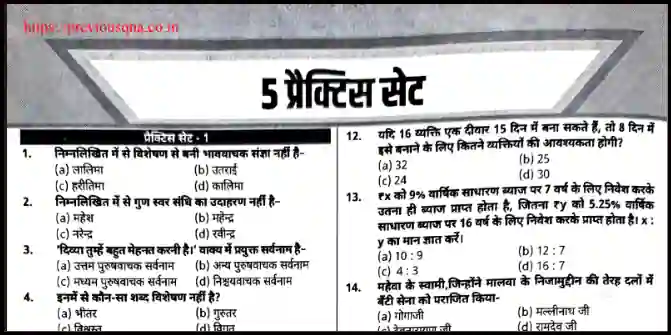 https://previousqna.co.in
5 प्रैक्टिस सेट
प्रैक्टिस सेट - 1
1. निम्नलिखित में से विशेषण से बनी भाववाचक संज्ञा नहीं है-
(a) लालिमा (b) उतराई
(c) हरीतिमा (d) कालिमा
2. निम्नलिखित में से गुण स्वर संधि का उदाहरण नहीं है-
(a) महेश (b) महेन्द्र
(c) नरेन्द्र (d) रवीन्द्र
3. 'दिव्या तुम्हें बहुत मेहनत करनी है।' वाक्य में प्रयुक्त सर्वनाम है-
(a) उत्तम पुरुषवाचक सर्वनाम (b) अन्य पुरुषवाचक सर्वनाम
(c) मध्यम पुरुषवाचक सर्वनाम (d) निश्चयवाचक सर्वनाम
4. इनमें से कौन-सा शब्द विशेषण नहीं है?
(a) भीतर (b) गुरुतर
(c) विश्वस्त (d) विगत
12. यदि 16 व्यक्ति एक दीवार 15 दिन में बना सकते हैं, तो 8 दिन में
इसे बनाने के लिए कितने व्यक्तियों की आवश्यकता होगी?
(a) 32 (b) 25
(c) 24 (d) 30
13. ₹x को 9% वार्षिक साधारण ब्याज पर 7 वर्ष के लिए निवेश करके
उतना ही ब्याज प्राप्त होता है, जितना ₹y को 5.25% वार्षिक
साधारण ब्याज पर 16 वर्ष के लिए निवेश करके प्राप्त होता है। x :
y का मान ज्ञात करें।
(a) 10 : 9 (b) 12 : 7
(c) 4 : 3 (d) 16 : 7
14. महेवा के स्वामी,जिन्होंने मालवा के निजामुद्दीन की तेरह दलों में
बँटी सेना को पराजित किया-
(a) गोगाजी (b) मल्लीनाथ जी
(c) देवनारायण जी (d) रामदेव जी